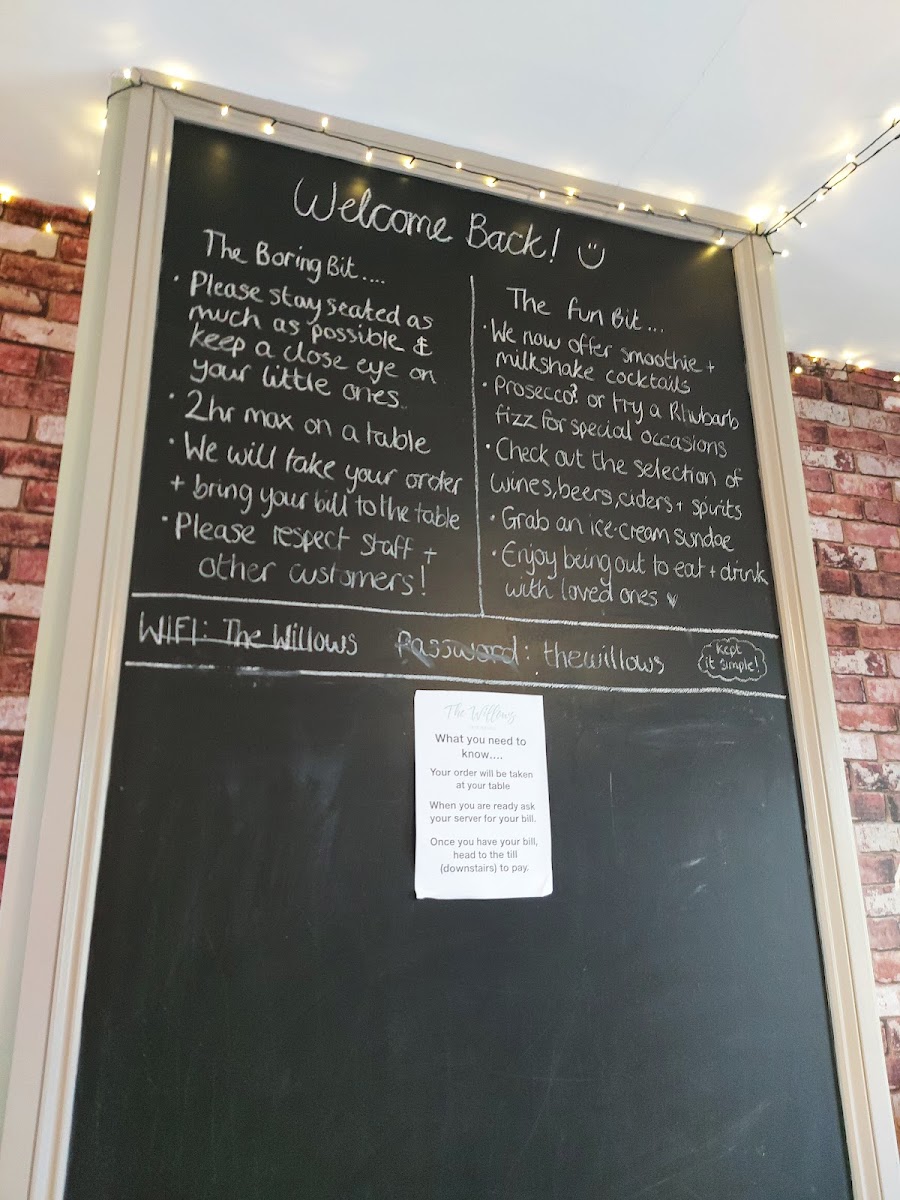 Welcome Back!
The Boring Bit....
• Please stay seated as
much as possible &
keep a close eye on
your little ones.
• 2hr max on a table
• We will take your order
+ bring your bill to the table
• Please respect staff +
other customers!
The fun Bit...
• We now offer smoothie +
milkshake cocktails
• Prosecco? or try a Rhubarb
fizz for special occasions
• Check out the selection of
wines, beers, ciders + spirits
• Grab an ice-cream sundae
• Enjoy being out to eat + drink
with loved ones
WIFI: The Willows Password: thewillows
Kept
it simple!
The Willows
What you need to
know....
Your order will be taken
at your table
When you are ready ask
your server for your bill.
Once you have your bill,
head to the till
(downstairs) to pay.